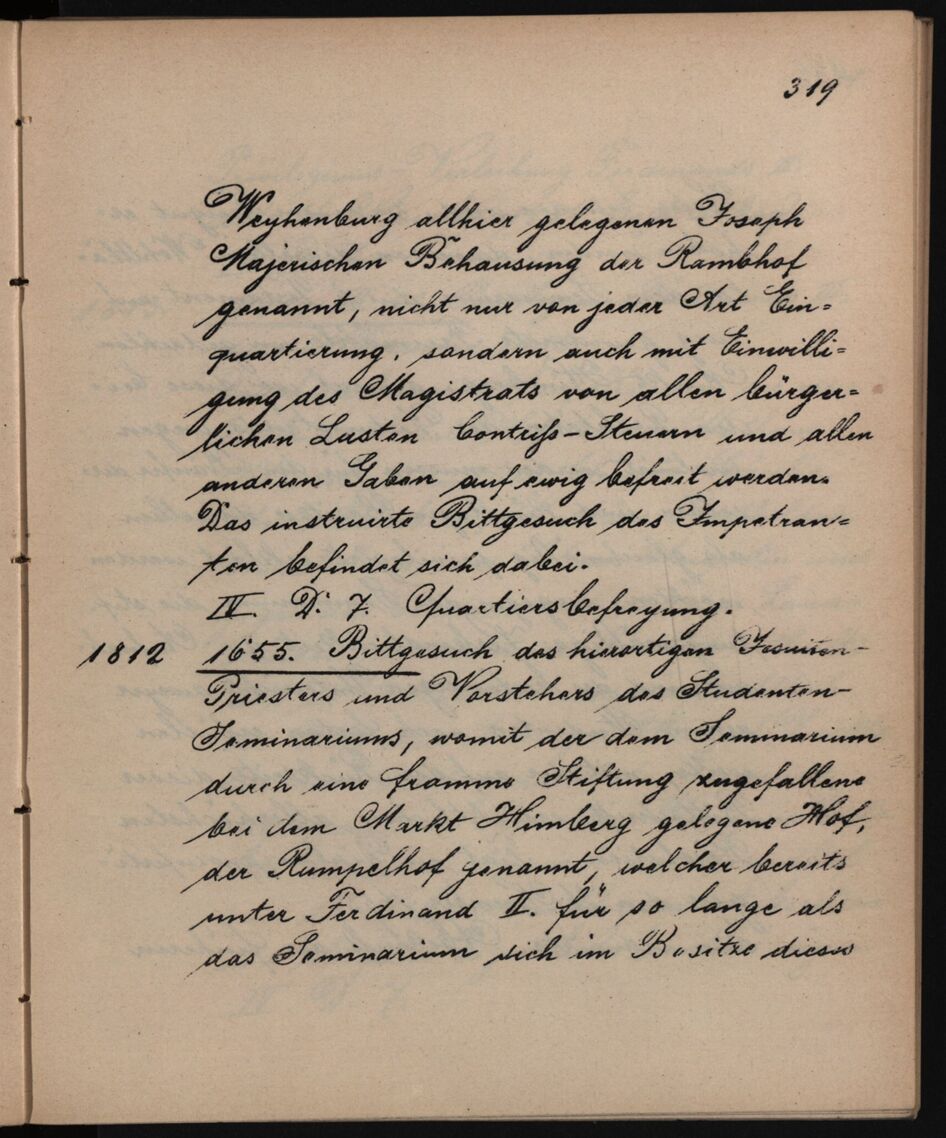 319
Weyhenburg allhier gelegenen Joseph
Majerischen Behausung der Rambhof
genannt, nicht nur von jeder Art Ein=
quartierung, sondern auch mit Einwilli=
gung des Magistrats von allen bürger=
lichen Lasten Contriß-Steuern und allen
anderen Gaben auf ewig befreit werden.
Das instruirte Bittgesuch des Impetran=
ten befindet sich dabei.
IV. D. 7. Quartiersbefreyung.
1812 1655. Bittgesuch des hierortigen Jesuiten-
Priesters und Vorstehers des Studenten-
Seminariums, womit der dem Seminarium
durch eine fromme Stiftung zugefallene
bei dem Markt Himberg gelegene Hof,
der Rumpelhof genannt, welcher bereits
unter Ferdinand II. für so lange als
das Seminarium sich im Besitze dieses